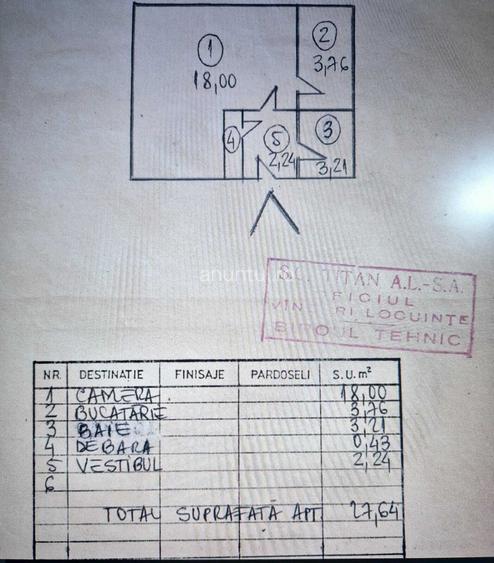 1
18,00
2
3,76
3
3,21
4
5
2,24
anuntu
S.C. TITAN A.L.-S.A.
FICIUL
VIN RI LOCUINTE
BIROUL TEHNIC
NR. DESTINATIE FINISAJE PARDOSELI S.U. m²
1 CAMERA. 18,00
2 BUCATARIE 3,76
3 BAIE 3,21
4 DEBARA 0,43
5 VESTIBUL 2,24
6
TOTAL SUPRAFATĂ APT. 27,64